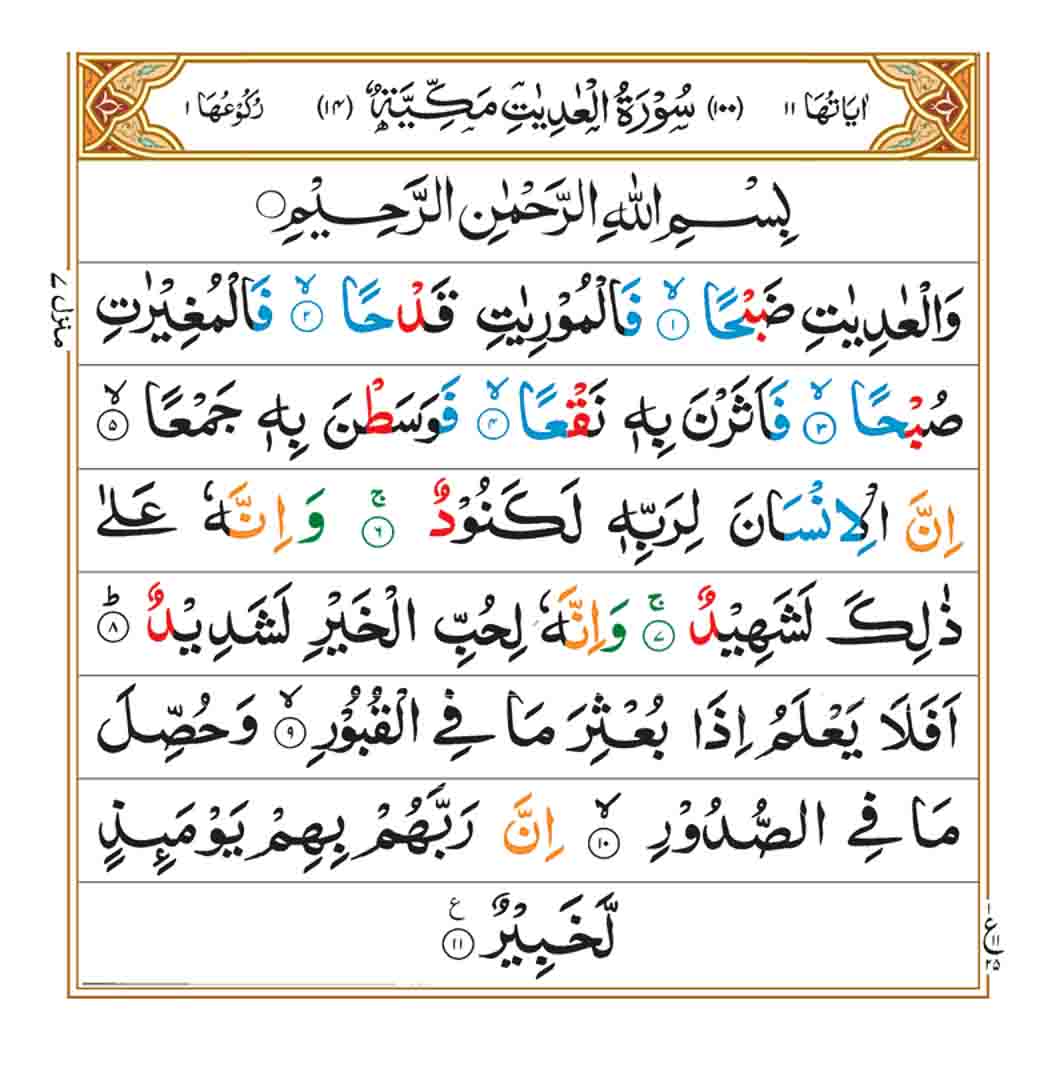 اٰيَاتُهَا ١١ (١٠٠) سُوْرَةُ الْعٰدِيٰتِ مَكِّيَّةٌ (١٤) رُكُوْعُهَا ١
بِسْمِ اللّٰهِ الرَّحْمٰنِ الرَّحِيْمِ ○
وَالْعٰدِيٰتِ ضَبْحًا ۙ﴿١﴾ فَالْمُوْرِيٰتِ قَدْحًا ۙ﴿٢﴾ فَالْمُغِيْرٰتِ
صُبْحًا ۙ﴿٣﴾ فَاَثَرْنَ بِهٖ نَقْعًا ۙ﴿٤﴾ فَوَسَطْنَ بِهٖ جَمْعًا ۙ﴿٥﴾
اِنَّ الْاِنْسَانَ لِرَبِّهٖ لَكَنُوْدٌ ۚ﴿٦﴾ وَ اِنَّهٗ عَلٰى
ذٰلِكَ لَشَهِيْدٌ ۚ﴿٧﴾ وَاِنَّهٗ لِحُبِّ الْخَيْرِ لَشَدِيْدٌ ؕ﴿٨﴾
اَفَلَا يَعْلَمُ اِذَا بُعْثِرَ مَا فِي الْقُبُوْرِ ۙ﴿٩﴾ وَحُصِّلَ
مَا فِي الصُّدُوْرِ ۙ﴿١٠﴾ اِنَّ رَبَّهُمْ بِهِمْ يَوْمَئِذٍ
لَّخَبِيْرٌ ﴿١١﴾ ع
منزل ٧
١
ع ١١
٢٥